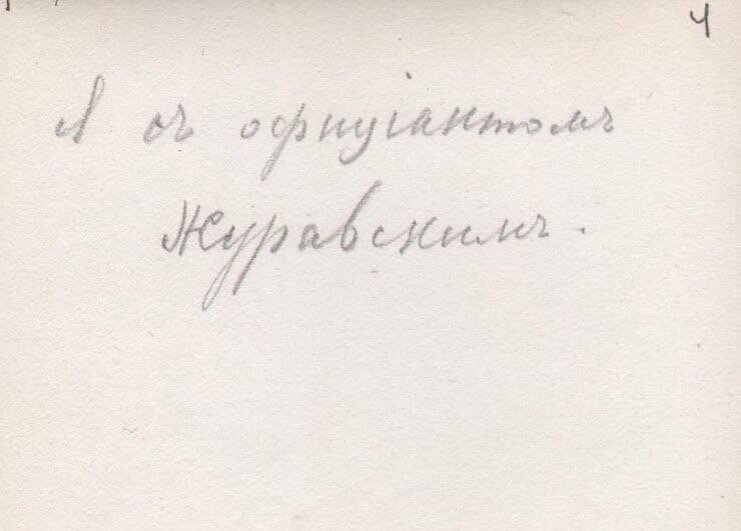 4
Я съ офиціантомъ
Журавскимъ.